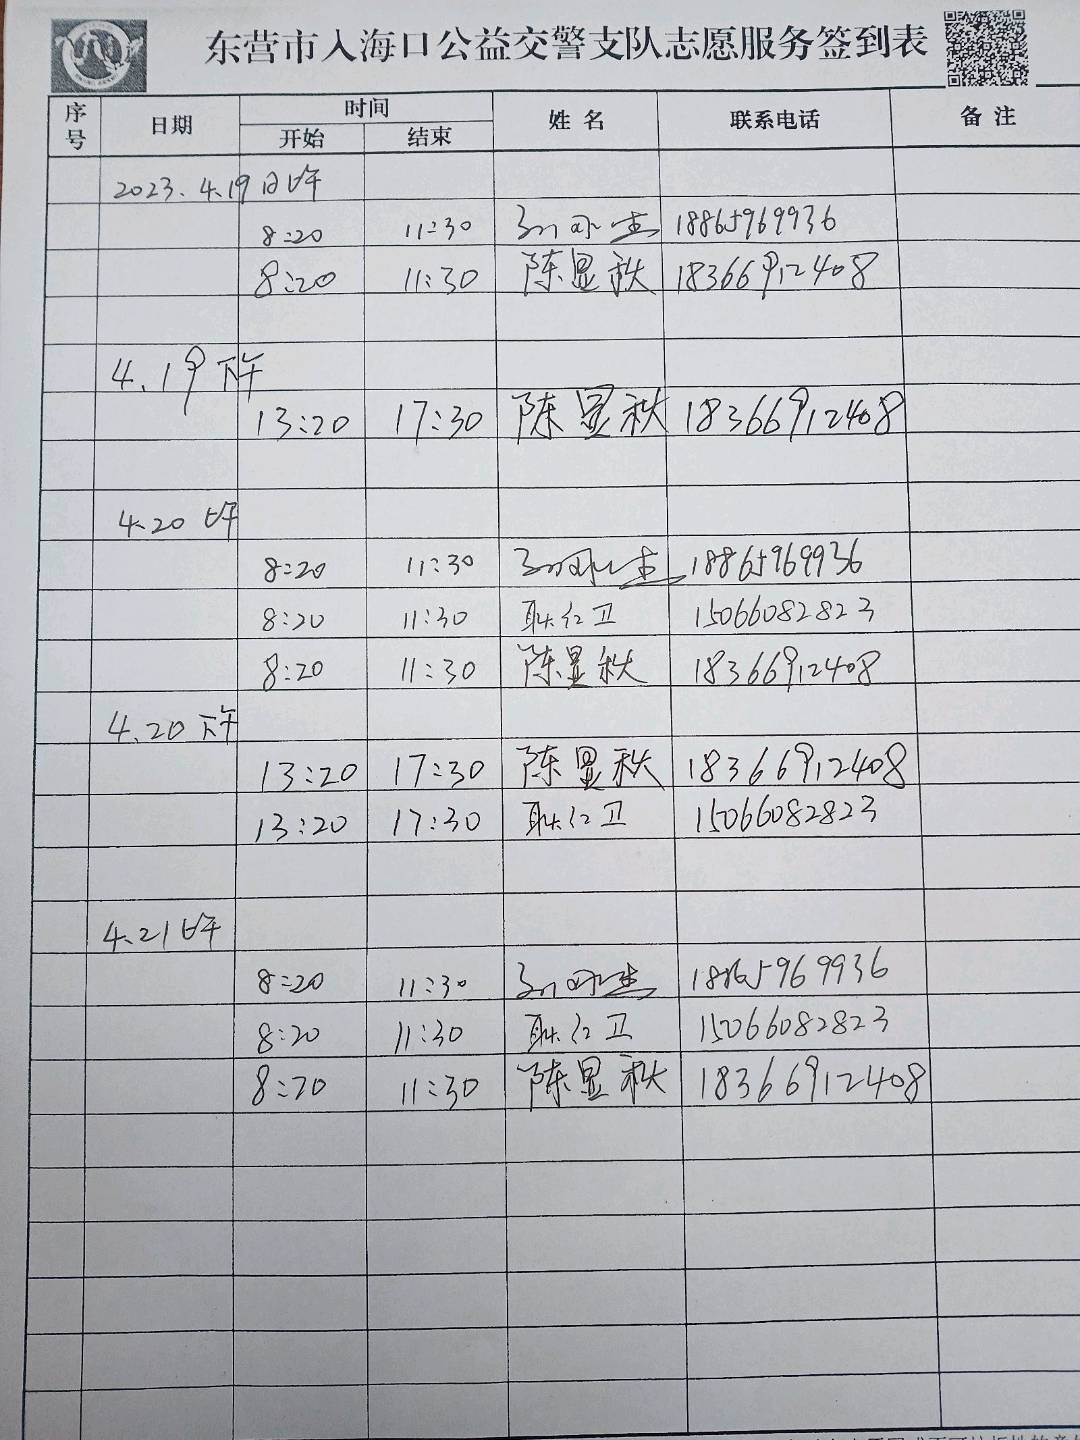 东营市入海口公益交警支队志愿服务签到表
序号 日期 时间 姓名 联系电话 备注
开始 结束
2023.4.19日上午
8:20 11:30 18865969936
8:20 11:30 陈显秋 18366912408
4.19下午
13:20 17:30 陈显秋 18366912408
4.20上午
8:20 11:30 18865969936
8:20 11:30 耿红卫 15066082823
8:20 11:30 陈显秋 18366912408
4.20下午
13:20 17:30 陈显秋 18366912408
13:20 17:30 耿红卫 15066082823
4.21上午
8:20 11:30 18865969936
8:20 11:30 耿红卫 15066082823
8:20 11:30 陈显秋 18366912408